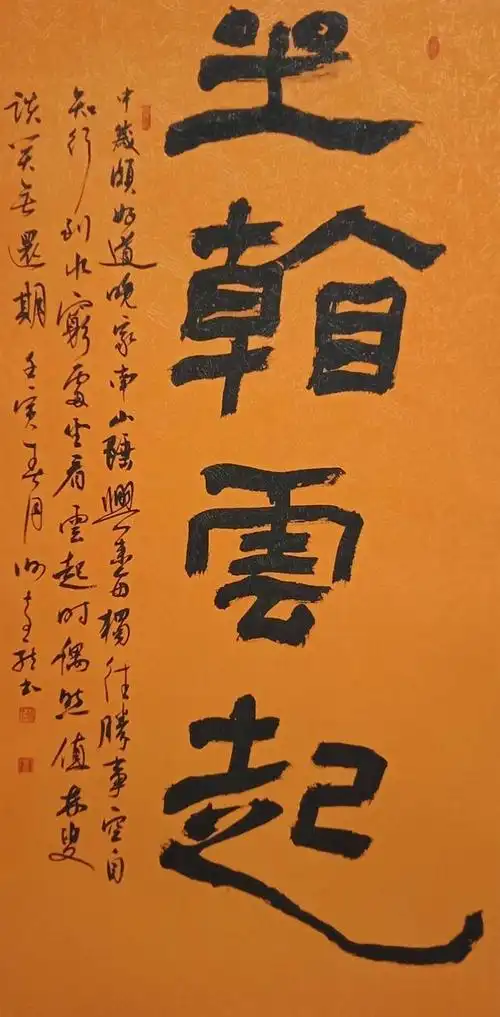 坐看雲起
中歲頗好道晚家南山陲興來每獨往勝事空自
知行到水窮處坐看雲起時偶然值林叟
談笑无還期 壬寅春月 書